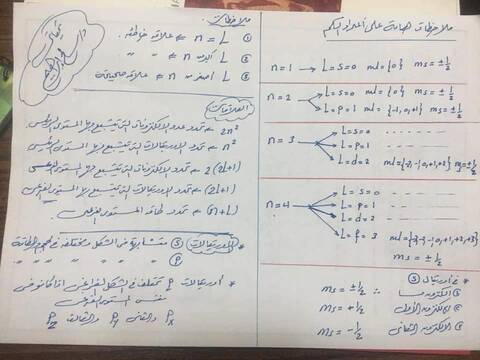 ملاحظات هامة على أعداد الكم
n = 1 → L = s = 0 ml = {0} ms = ± 1/2
n = 2 → L = s = 0 ml = {0} ms = ± 1/2
L = p = 1 ml = {-1, 0, +1} ms = ± 1/2
n = 3 → L = s = 0
L = p = 1
L = d = 2 ml = {-2, -1, 0, +1, +2} ms = ± 1/2
n = 4 → L = s = 0
L = p = 1
L = d = 2
L = f = 3 ml = {-3, -2, -1, 0, +1, +2, +3}
ms = ± 1/2
* في أوربيتال s
ms = ± 1/2
الإلكترون الأول ms = + 1/2
الإلكترون الثاني ms = - 1/2
ملاحظات
① n = L علاقة خاطئة
② L أكبر من n " "
③ L أصغر من n علاقة صحيحة
العلاقات
2n² ← تحدد عدد الإلكترونات التي يتشبع بها المستوى الرئيسي
n² ← تحدد عدد الأوربيتالات التي يتشبع بها المستوى الرئيسي
2(2L+1) ← تحدد عدد الإلكترونات التي يتشبع بها المستوى الفرعي
(2L+1) ← تحدد عدد الأوربيتالات التي يتشبع بها المستوى الفرعي
(n+L) ← تحدد طاقة المستوى الفرعي
* الأوربيتالات s متشابهة في الشكل مختلفة في الحجم والطاقة
P " " " "
* أوربيتالات P تختلف في الشكل الفراغي إذا كانوا في
نفس المستوى الفرعي
Px والثاني Py والثالث Pz